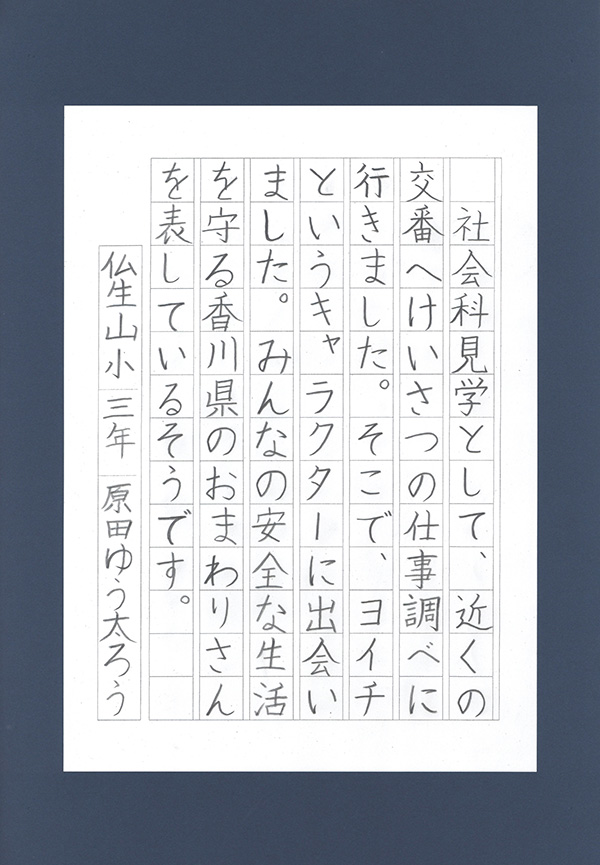 社会科見学として、近くの
交番へけいさつの仕事調べに
行きました。そこで、ヨイチ
というキャラクターに出会い
ました。みんなの安全な生活
を守る香川県のおまわりさん
を表しているそうです。
仏生山小 三年 原田ゆう太ろう